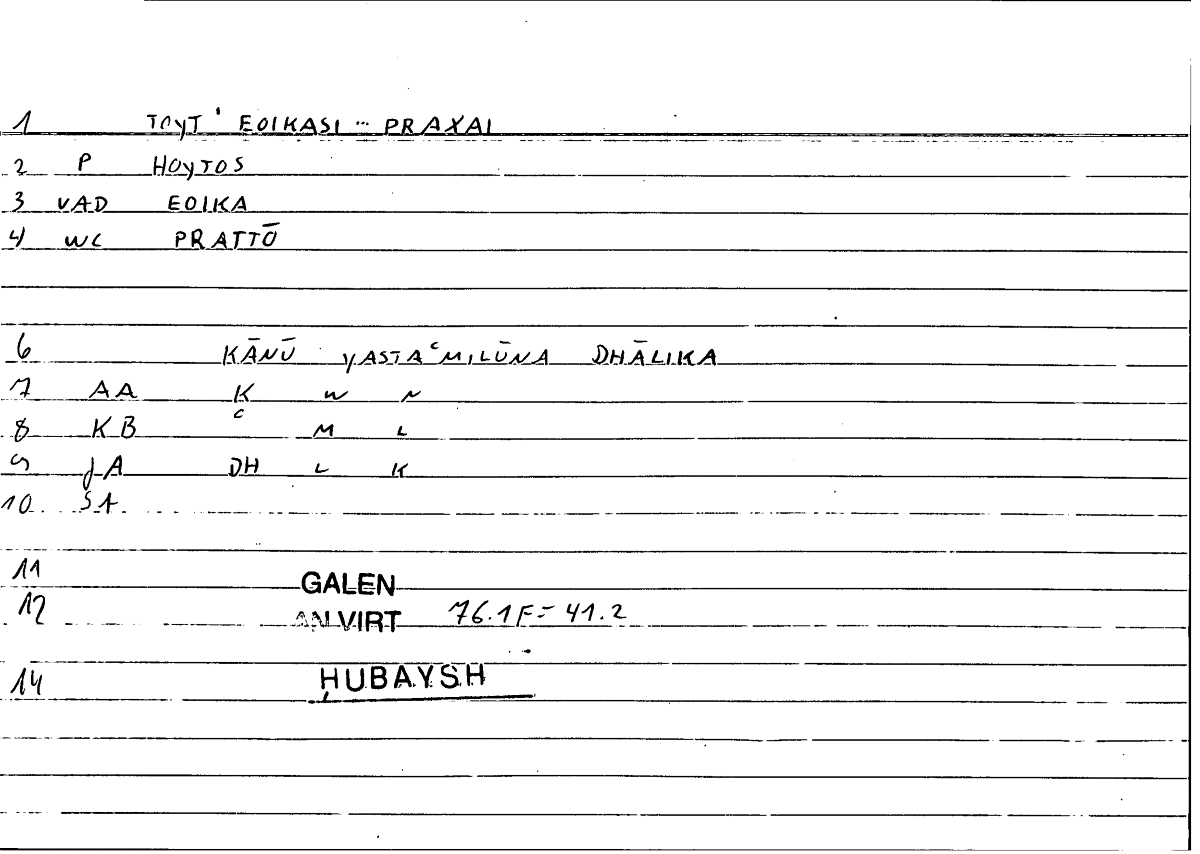 1 TOYT' EOIKASI ... PRAXAI
2 P HOYTOS
3 VAD EOIKA
4 WC PRATTŌ
6 KĀNŪ YASTAʿMILŪNA DHĀLIKA
7 AA K W N
8 KB ʿ M L
9 JA DH L K
10 ŠA
11 GALEN
12 AN VIRT 76.1F = 41.2
14 ḤUBAYSH